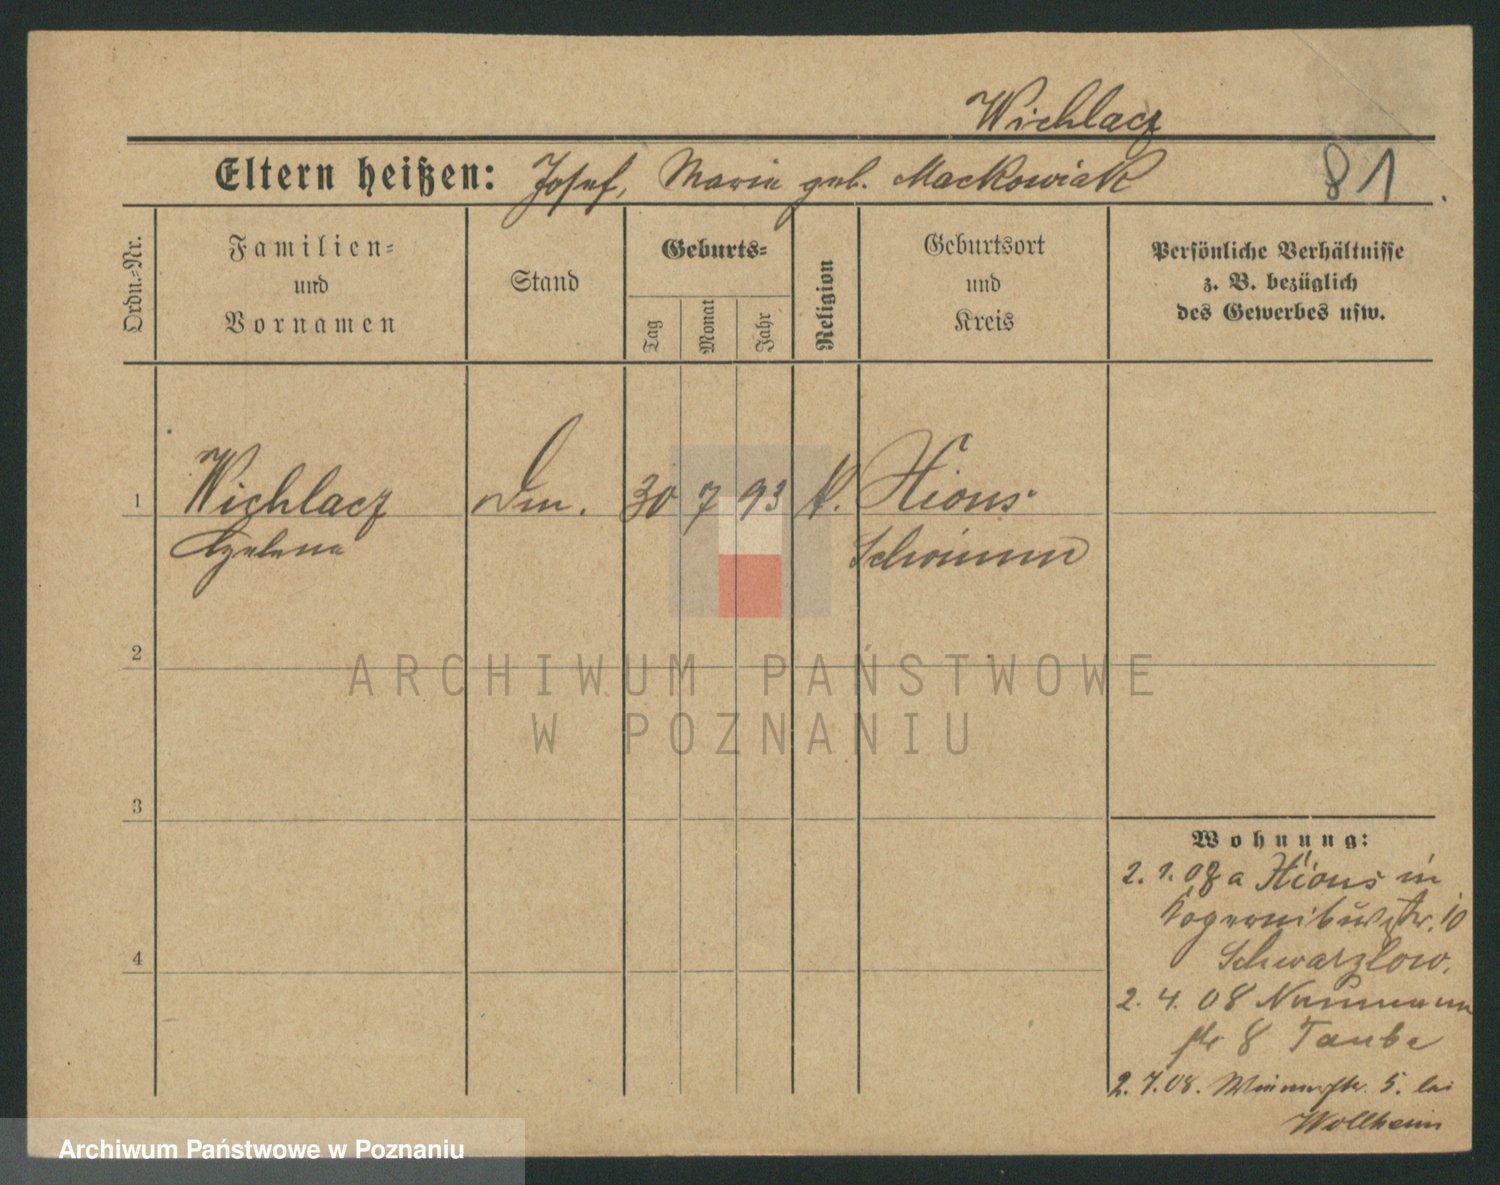 Wichlacz
Eltern heißen: Josef, Maria geb. Mackowiak
81
Ordn.=Nr.
Familien=
und
Vornamen
Stand
Geburts=
Tag
Monat
Jahr
Religion
Geburtsort
und
Kreis
Persönliche Verhältnisse
z. B. bezüglich
des Gewerbes usw.
1
Wichlacz
Dm.
30 7 93 k. Xions
Schrimm
2
ARCHIWUM PAŃSTWOWE
W POZNANIU
3
Wohnung:
2. 1. 08 a Xions in
10
Schwarzlow.
4
2. 4. 08 Naumann
str 8 Taube
2. 7. 08. 5. bei
Wollheim
Archiwum Państwowe w Poznaniu